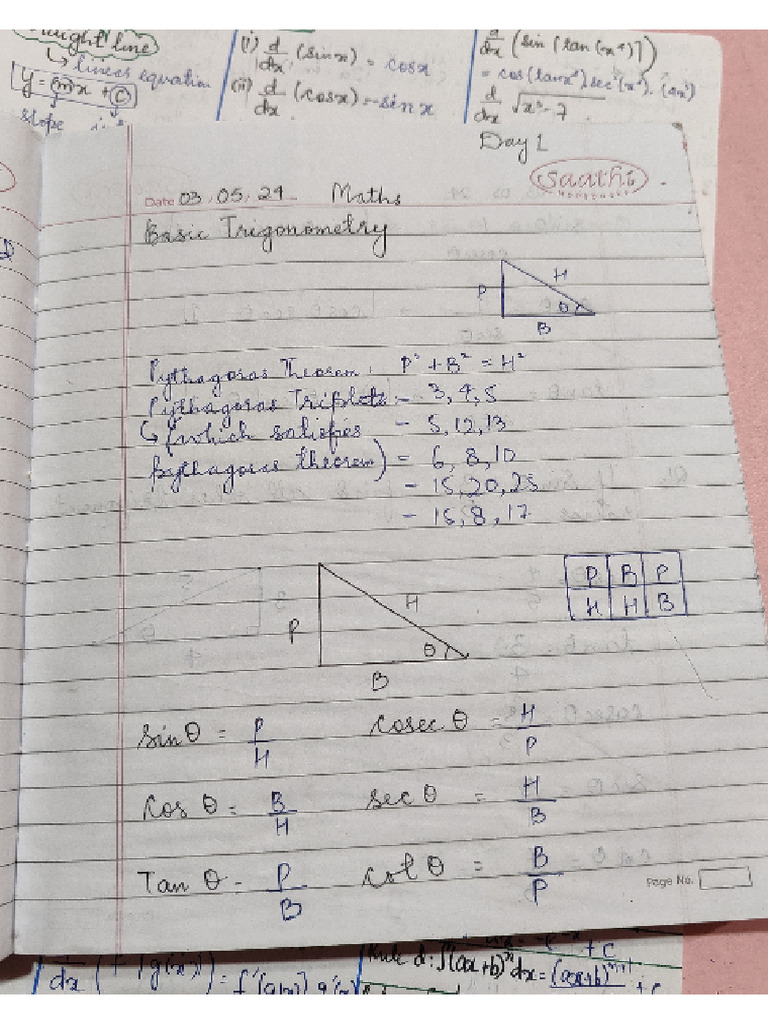 straight line
↳ linear equation
y = mx + c
slope
(i) d/dx (sin x) = cos x
(ii) d/dx (cos x) = -sin x
d/dx (sin (tan (x⁴)))
d/dx √x³-7
Day 1
Saathi
Date 03.05.24 Maths
Basic Trigonometry
P H
θ
B
Pythagoras Theorem: P² + B² = H²
Pythagoras Triplets :- 3, 4, 5
↳ (which satisfies - 5, 12, 13
pythagoras theorem) = 6, 8, 10
- 15, 20, 25
- 15, 8, 17
P H
θ
B
P B P
H H B
sin θ = P/H cosec θ = H/P
cos θ = B/H sec θ = H/B
Tan θ = P/B cot θ = B/P
Page No.
Rule d: ∫(ax+b)ⁿ dx = (ax+b)ⁿ⁺¹ + c